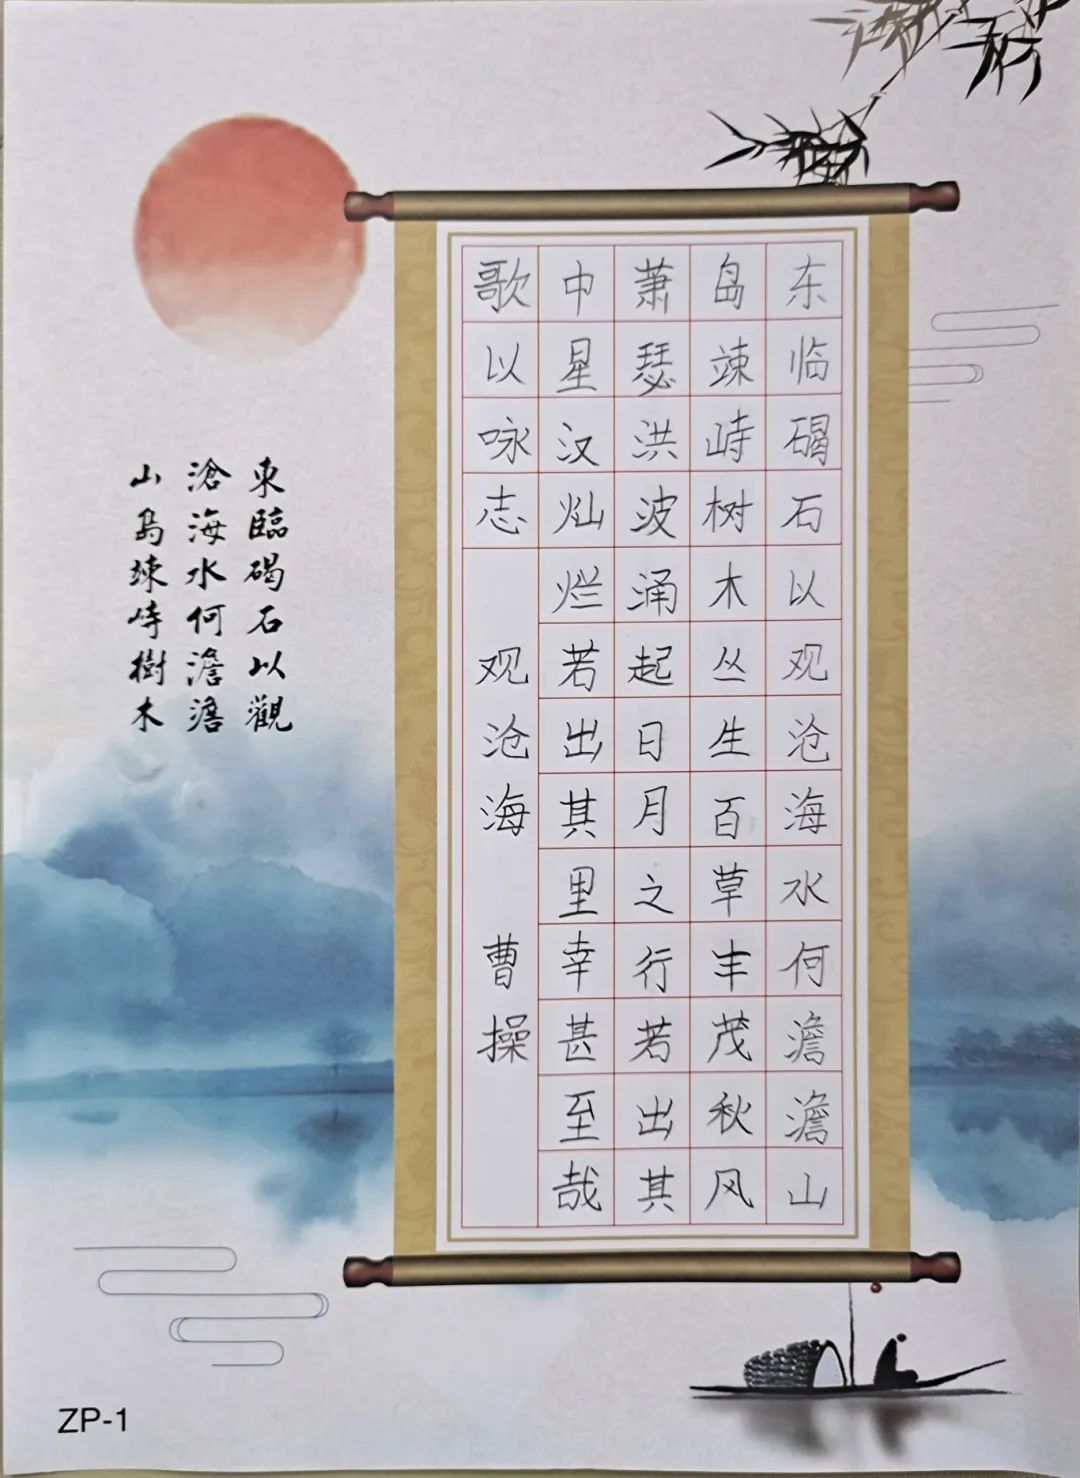 东临碣石以观沧海水何澹澹山
岛竦峙树木丛生百草丰茂秋风
萧瑟洪波涌起日月之行若出其
中星汉灿烂若出其里幸甚至哉
歌以咏志
观沧海 曹操
東臨碣石以觀
滄海水何澹澹
山島竦峙樹木
ZP-1